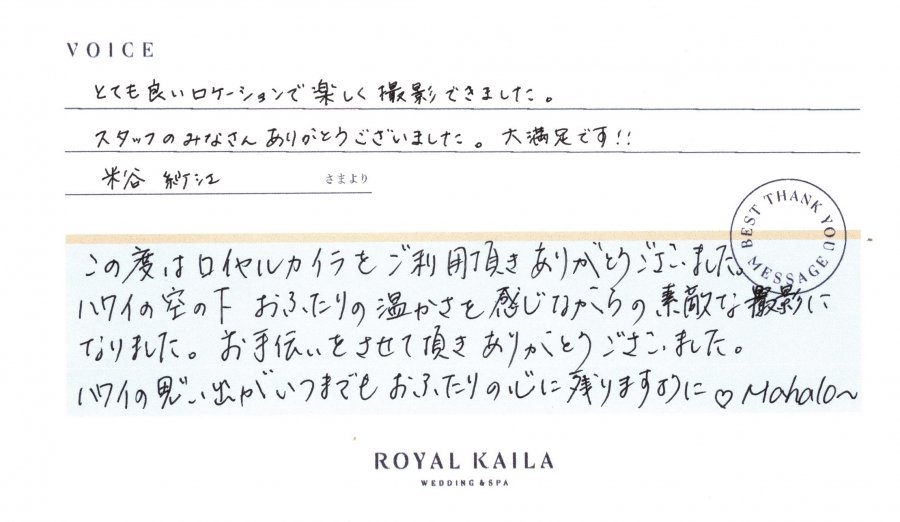 VOICE
とても良いロケーションで楽しく撮影できました。
スタッフのみなさんありがとうございました。大満足です!!
米谷 さまより
BEST THANK YOU MESSAGE
この度はロイヤルカイラをご利用頂きありがとうございました。
ハワイの空の下 おふたりの温かさを感じながらの素敵な撮影に
なりました。お手伝いをさせて頂きありがとうございました。
ハワイの思い出がいつまでもおふたりの心に残りますように♡ Mahalo~
ROYAL KAILA
WEDDING & SPA